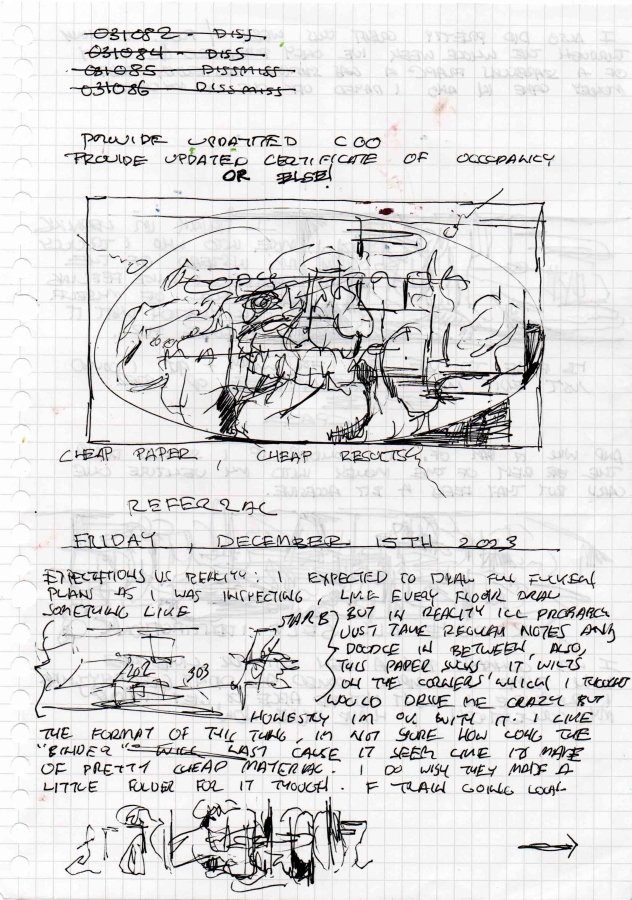 031082 - DISS
031084 - DISS
031085 DISSMISS
031086 DISSMISS
PROVIDE UPDATTED COO
PROVIDE UPDATED CERTIFICATE OF OCCUPANCY
OR ELSE
CHEAP PAPER, CHEAP RESULTS
REFERRAL
FRIDAY, DECEMBER 15TH 2023
EXPECTATIONS VS REALITY: I EXPECTED TO DRAW FULL FUCKEN
PLANS AS I WAS INSPECTING, LIKE EVERY FLOOR DRAW
SOMETHING LIKE
STAR B
202 303
BUT IN REALITY ILL PROBABLY
JUST TAKE REGULAR NOTES AND
DOODLE IN BETWEEN, ALSO,
THIS PAPER SUCKS IT WILTS
ON THE CORNERS WHICH I THOUGHT
WOULD DRIVE ME CRAZY BUT
HONESTLY IM OK WITH IT. I LIKE
THE FORMAT OF THIS THING, IM NOT SURE HOW LONG THE
"BINDER" WILL LAST CAUSE IT SEEM LIKE IS MADE
OF PRETTY CHEAP MATERIAL. I DO WISH THEY MADE A
LITTLE FOLDER FOR IT THOUGH. F TRAIN GOING LOCAL